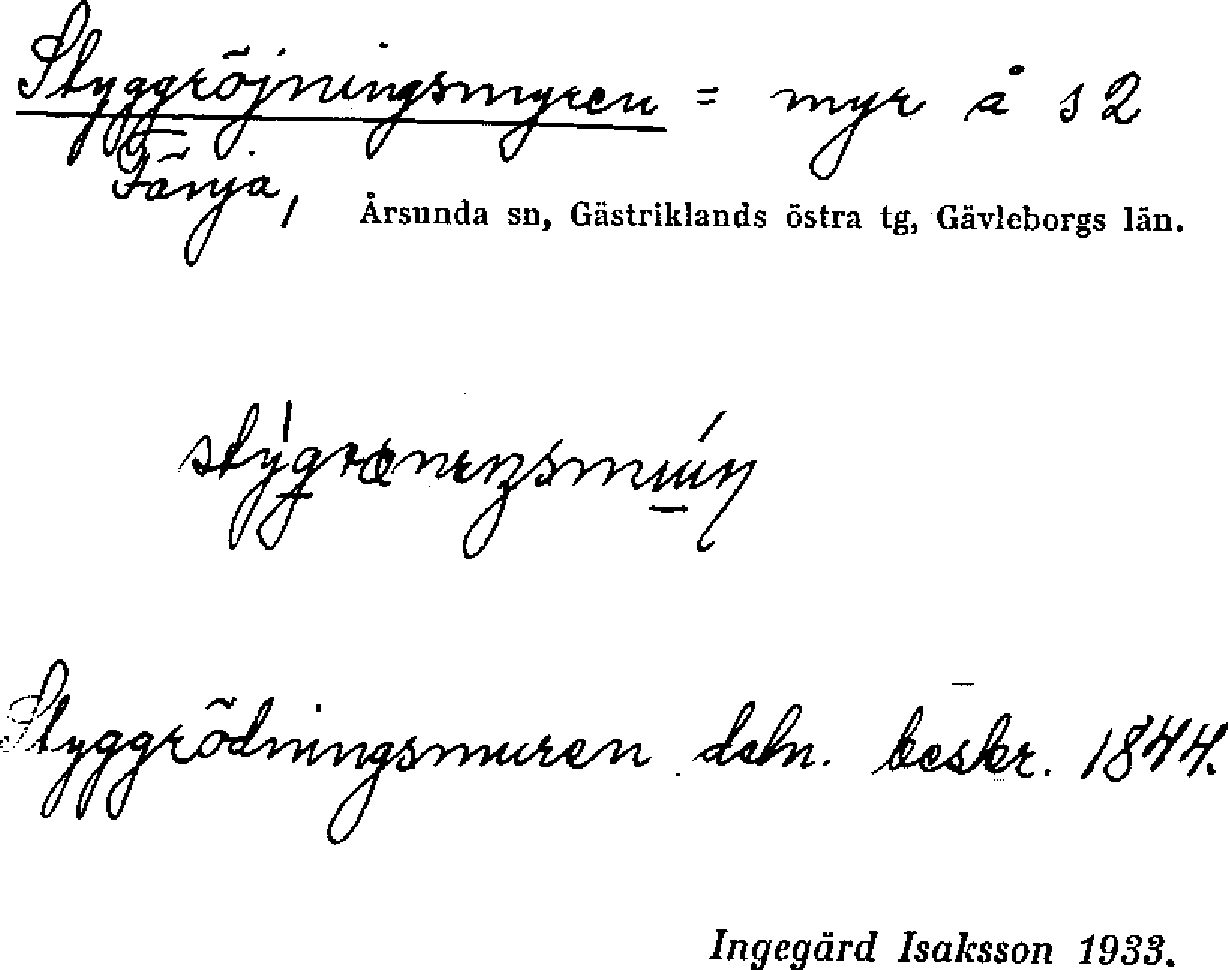 Styggröjningsmyren = myr å s 2
Fänja, Årsunda sn, Gästriklands östra tg, Gävleborgs län.
Styggrödningsmuren deln. beskr. 1844.
Ingegärd Isaksson 1933.